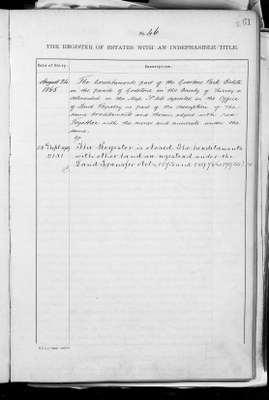 61
No 46
THE REGISTER OF ESTATES WITH AN INDEFEASIBLE TITLE.
Date of Entry.
Description.
August 24
1865
The hereditaments part of the Park Estate
in the parish of Godstone in the County of Surrey
delineated in the Map No 46 deposited in the Office
of Land Registry as part of the description of the
same hereditaments and thereon edged with red
Together with the mines and minerals under the
same.
The Register is closed. The hereditaments
with other land are registered under the
Land Transfer Acts, 1875 and 1897